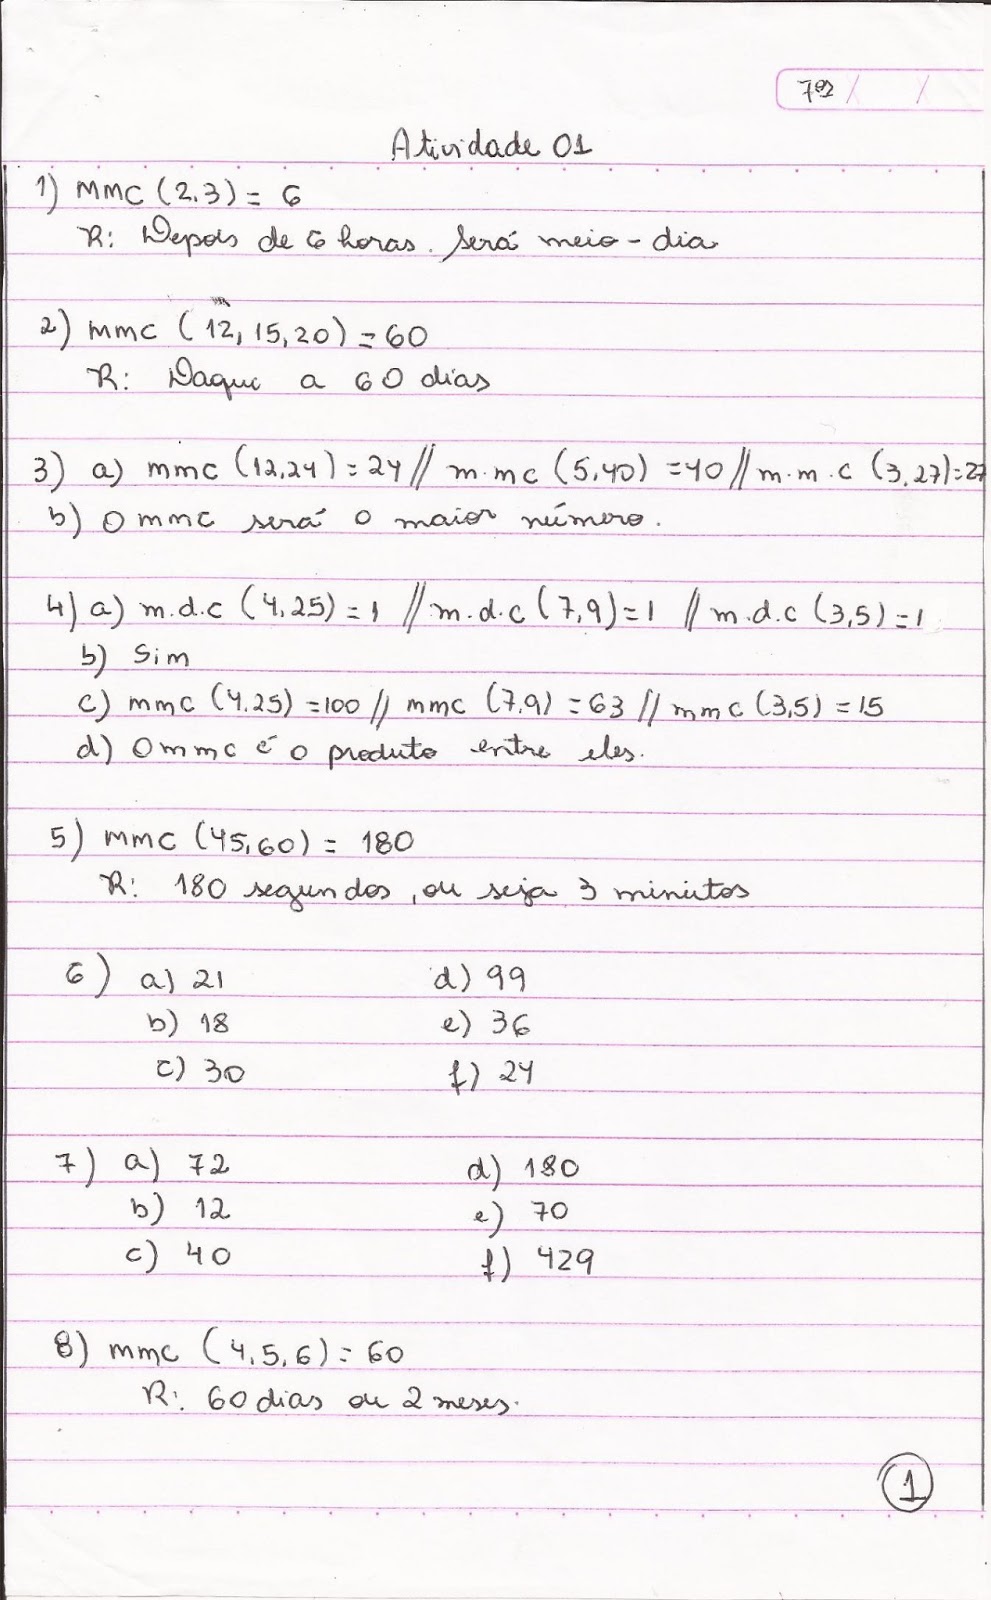 7ºs / /
Atividade 01
1) MMC (2,3) = 6
R: Depois de 6 horas. Será meio-dia
2) MMC (12, 15, 20) = 60
R: Daqui a 60 dias
3) a) mmc (12,24) = 24 // m.mc (5,40) = 40 // m.m.c (3,27) = 27
b) O mmc será o maior número.
4) a) m.d.c (4,25) = 1 // m.d.c (7,9) = 1 // m.d.c (3,5) = 1
b) Sim
c) mmc (4,25) = 100 // mmc (7,9) = 63 // mmc (3,5) = 15
d) O mmc é o produto entre eles.
5) MMC (45,60) = 180
R: 180 segundos, ou seja 3 minutos
6) a) 21 d) 99
b) 18 e) 36
c) 30 f) 24
7) a) 72 d) 180
b) 12 e) 70
c) 40 f) 429
8) MMC (4,5,6) = 60
R: 60 dias ou 2 meses.
1